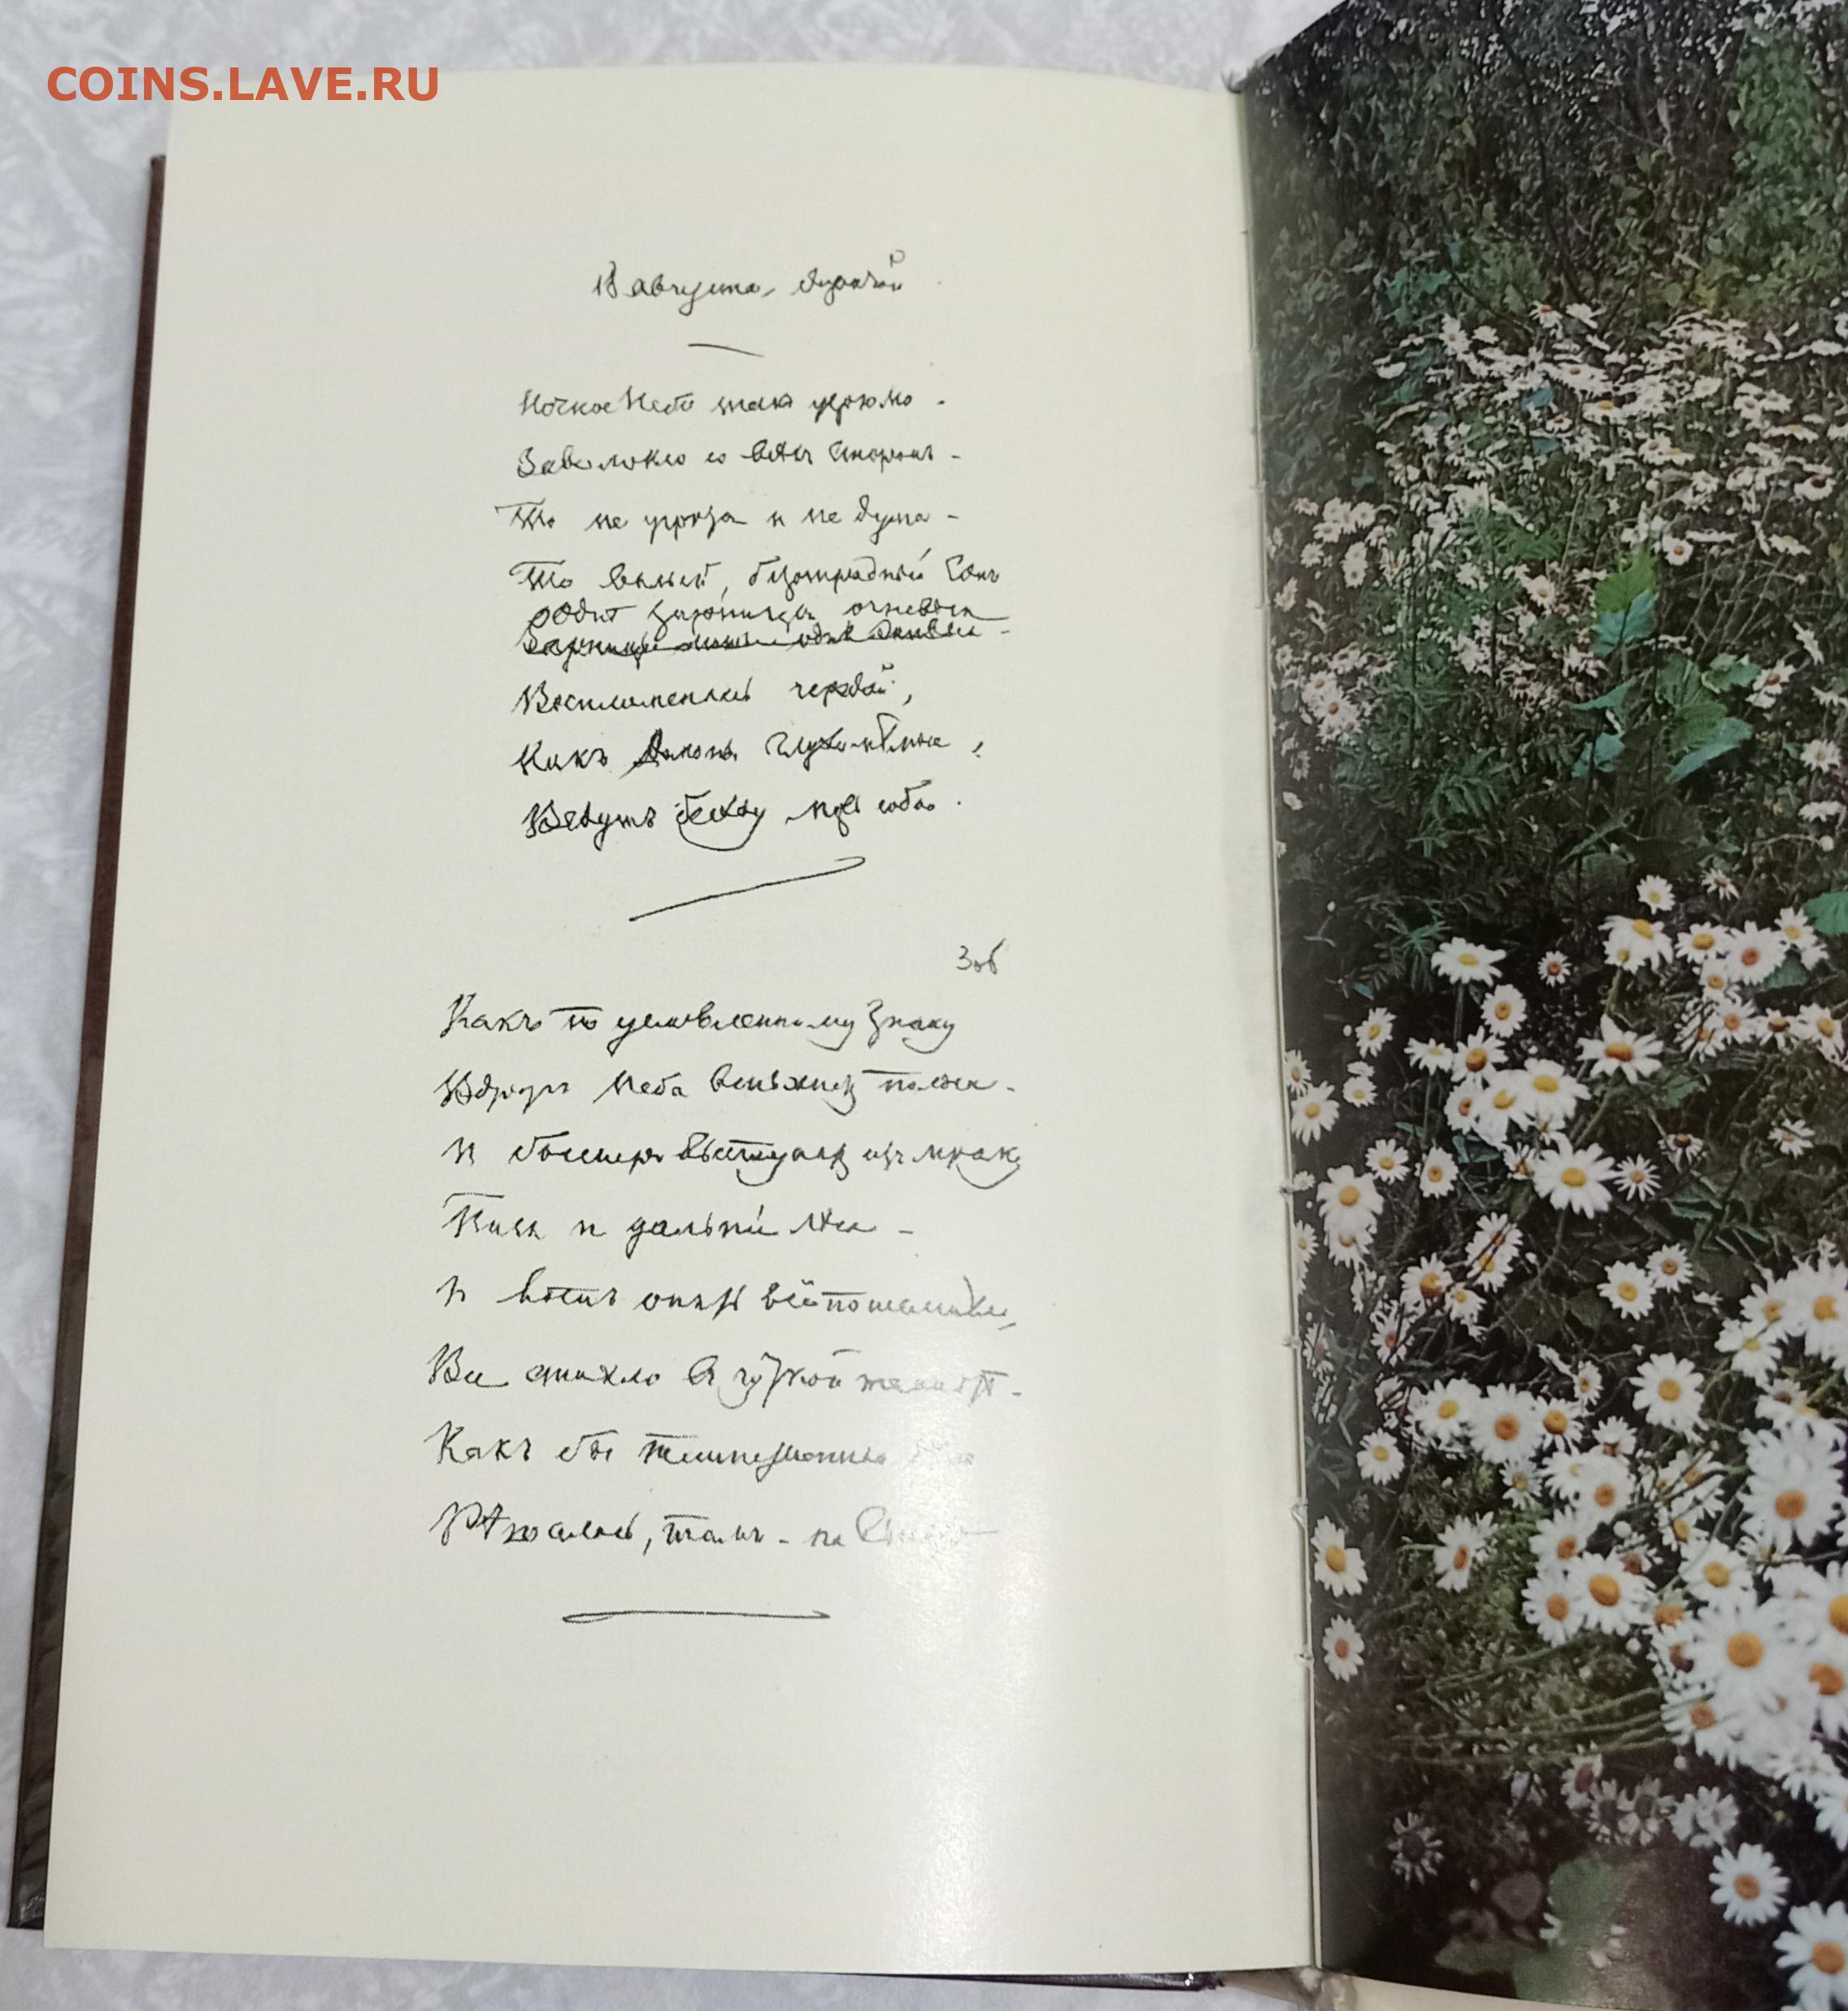 COINS.LAVE.RU
18 августа, дорогой
Ночное Небо такъ угрюмо -
Заволокло со всѣхъ сторонъ -
То не угроза и не дума -
То вялый, безотрадный Сонъ
Однѣ зарницы огневыя
Зарницы
Воспламеняясь чередой,
Какъ Демоны глухонѣмые,
Ведутъ бесѣду межъ собою.
Какъ по условленному знаку
Вдругъ Неба вспыхнетъ полоса -
И быстро выступятъ изъ мраку
Поля и дальнiе лѣса -
И вотъ опять всё потемнѣло,
Все стихло въ чуткой темнотѣ -
Какъ бы таинственное дѣло
Рѣшалось, тамъ - на